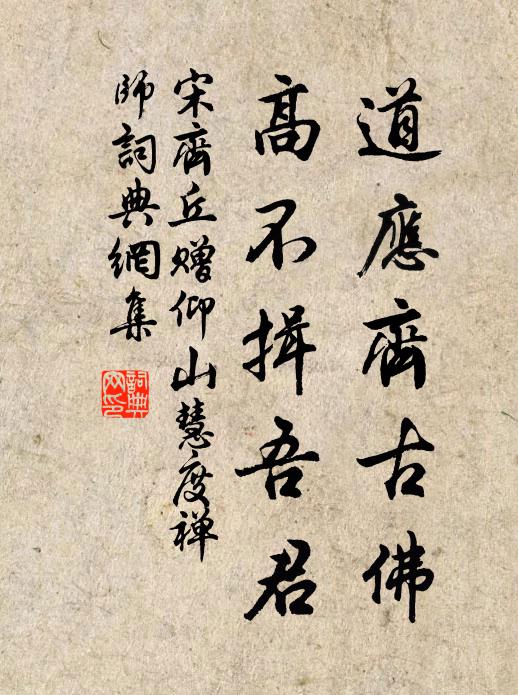 道應齊古佛
高不揖吾君
宋齊丘贈仰山慧度禅
師詞典網集
詞典
网印